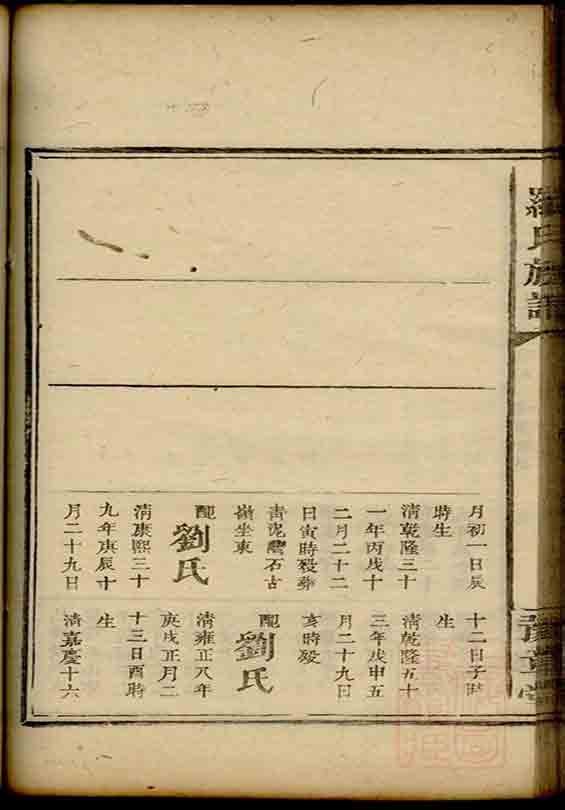 羅氏族譜
月初一日辰
時生
清乾隆三十
一年丙戌十
二月二十二
日寅時歿葬
青泥灣石古
嶺坐東
配
劉氏
清康熙三十
九年庚辰十
月二十九日
十二日子時
生
清乾隆五十
三年戊申五
月二十九日
亥時歿
配
劉氏
清雍正八年
庚戌正月二
十三日酉時
生
清嘉慶十六
豫章堂